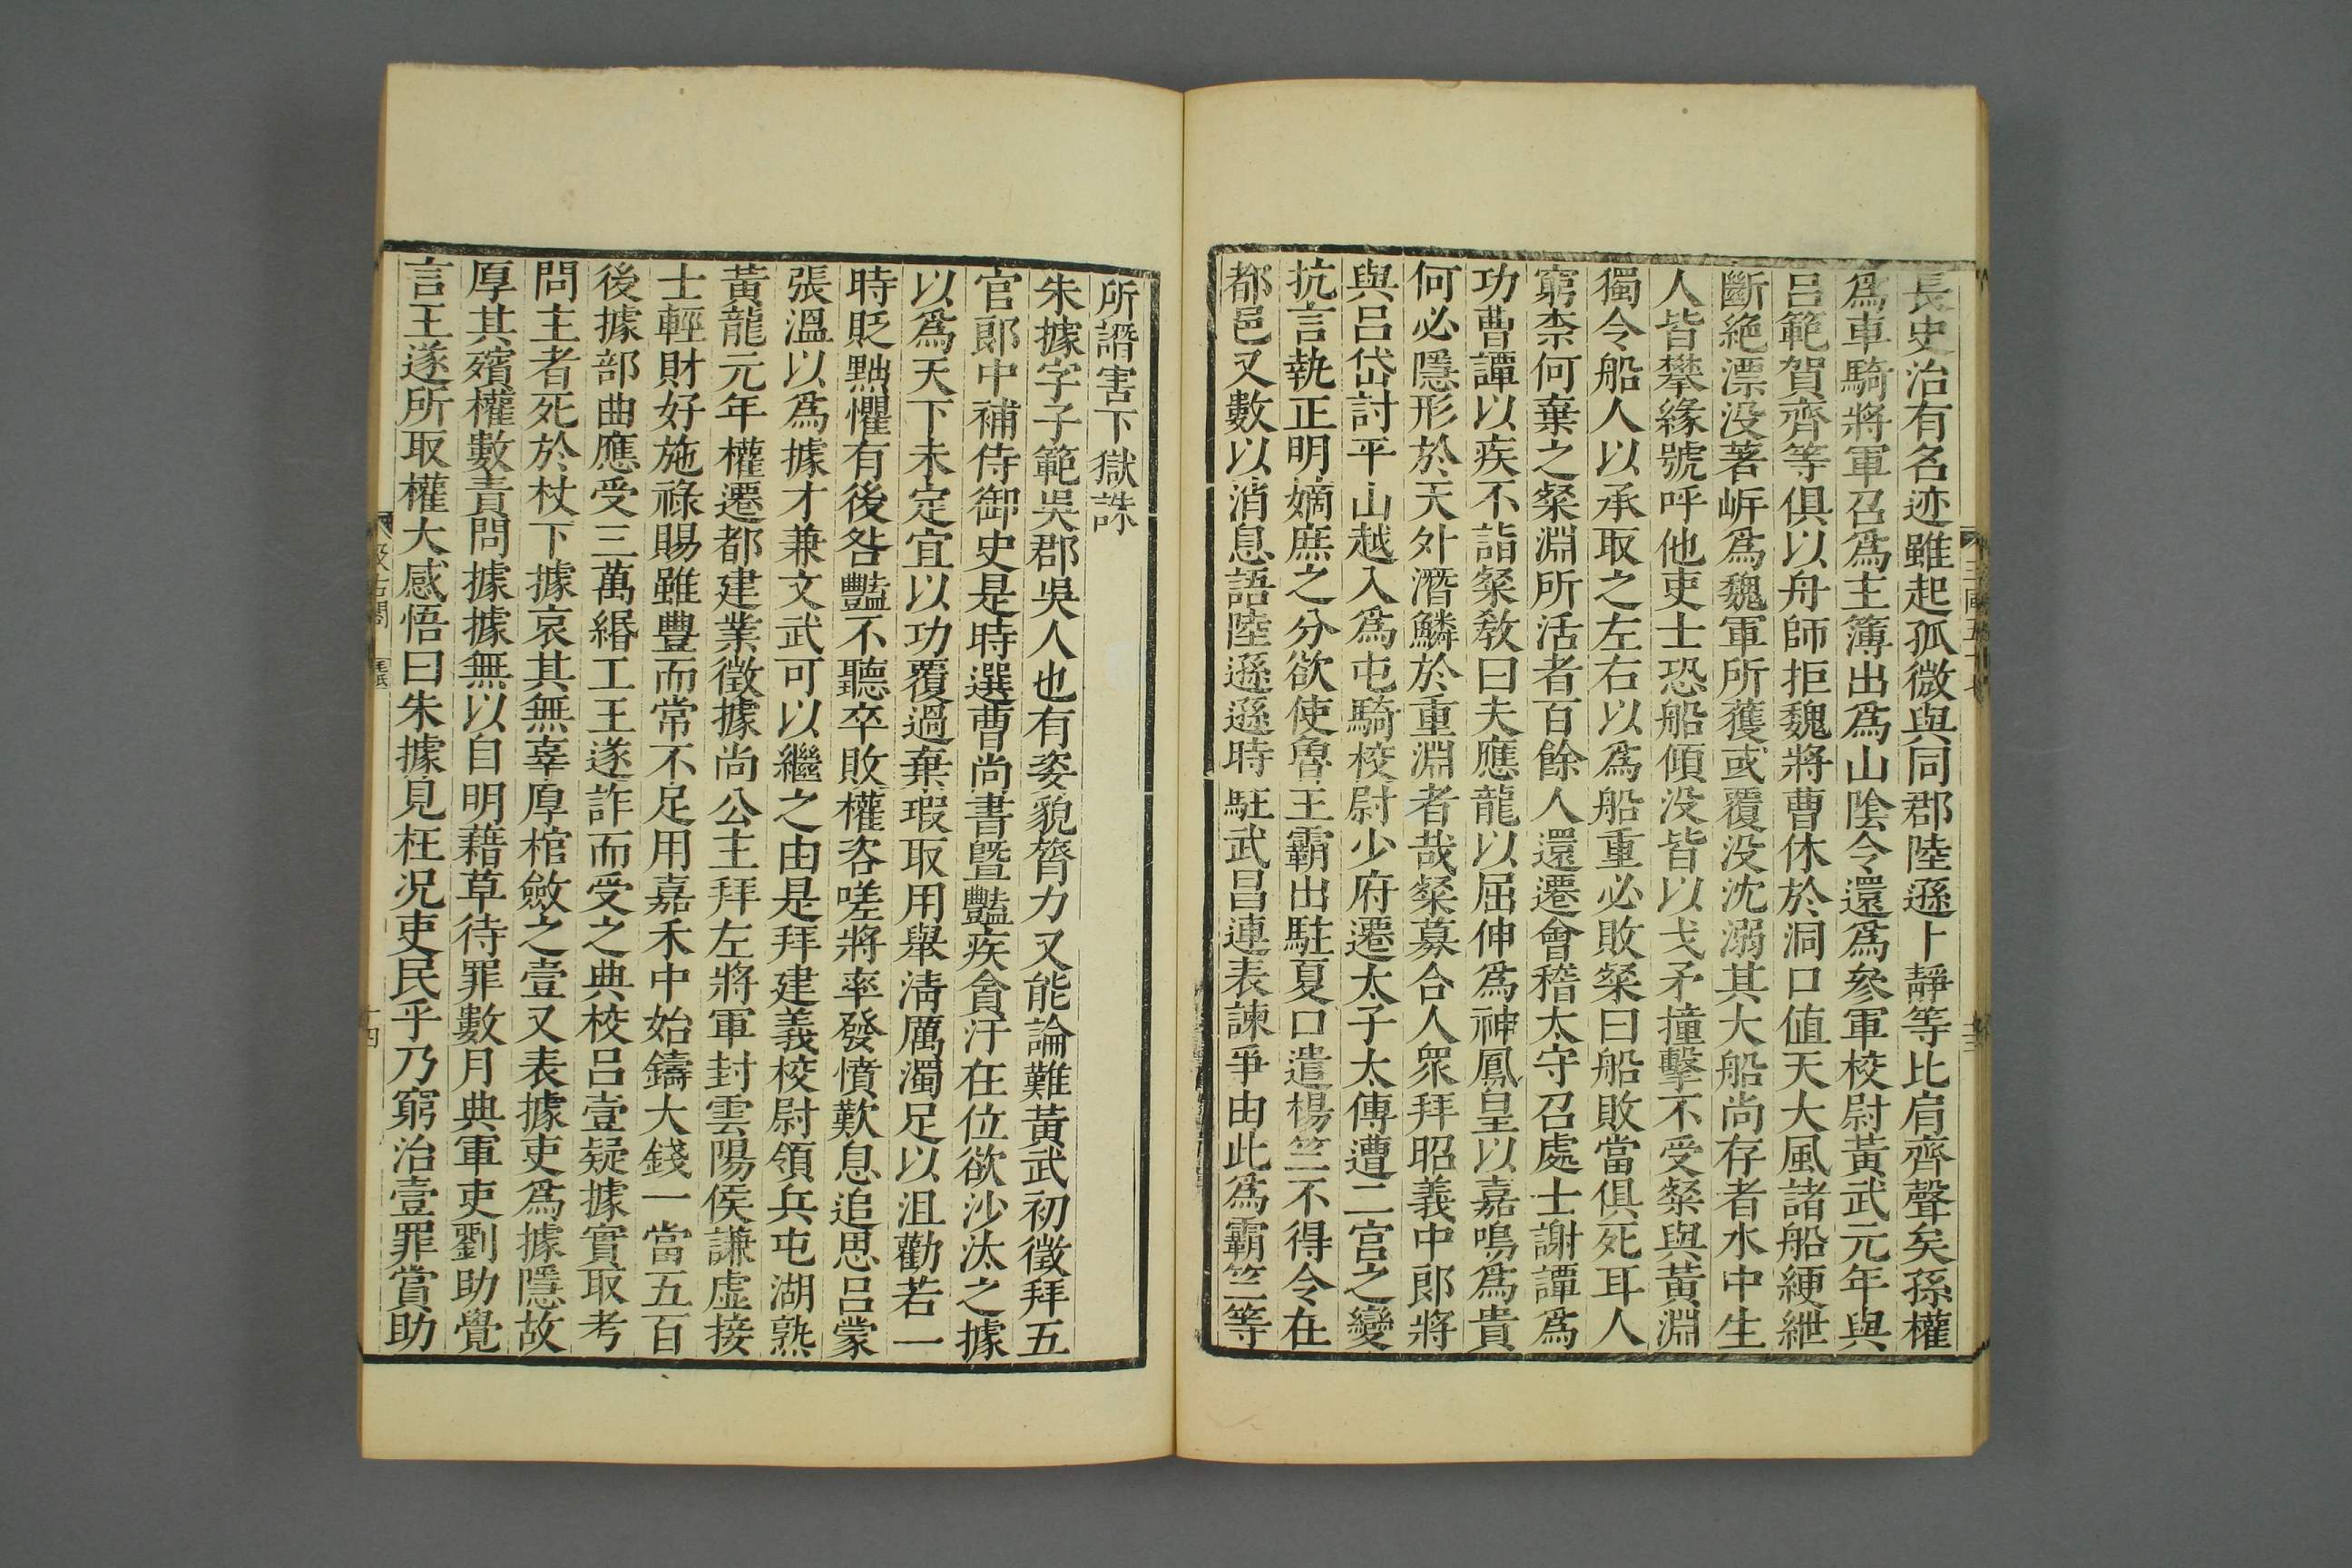 長史治有名迹雖起孤微與同郡陸遜卜靜等比肩齊聲矣孫權
爲車騎將軍召爲主簿出爲山陰令還爲參軍校尉黃武元年與
呂範賀齊等俱以舟師拒魏將曹休於洞口值天大風諸船綆紲
斷絶漂没著岍爲魏軍所獲或覆没沈溺其大船尚存者水中生
人皆攀緣號呼他吏士恐船傾没皆以戈矛撞擊不受粲與黃淵
獨令船人以承取之左右以爲船重必敗粲曰船敗當俱死耳人
窮柰何棄之粲淵所活者百餘人還遷會稽太守召處士謝譚爲
功曹譚以疾不詣粲敎曰夫應龍以屈伸爲神鳳皇以嘉鳴爲貴
何必隱形於天外潛鱗於重淵者哉粲募合人衆拜昭義中郎將
與呂岱討平山越入爲屯騎校尉少府遷太子太傅遭二宮之變
抗言執正明嫡庶之分欲使魯王霸出駐夏口遣楊竺不得令在
都邑又數以消息語陸遜遜時駐武昌連表諫爭由此爲霸竺等
所譖害下獄誅
朱據字子範吳郡吳人也有姿貌膂力又能論難黃武初徵拜五
官郎中補侍御史是時選曹尚書曁豔疾貪汙在位欲沙汰之據
以爲天下未定宜以功覆過棄瑕取用舉淸厲濁足以沮勸若一
時貶黜懼有後咎豔不聽卒敗權咨嗟將率發憤歎息追思呂蒙
張溫以爲據才兼文武可以繼之由是拜建義校尉領兵屯湖熟
黃龍元年權遷都建業徵據尚公主拜左將軍封雲陽侯謙虛接
士輕財好施祿賜雖豐而常不足用嘉禾中始鑄大錢一當五百
後據部曲應受三萬緡工王遂詐而受之典校呂壹疑據實取考
問主者死於杖下據哀其無辜厚棺斂之壹又表據吏爲據隱故
厚其殯權數責問據據無以自明藉草待罪數月典軍吏劉助覺
言王遂所取權大感悟曰朱據見枉况吏民乎乃窮治壹罪賞助